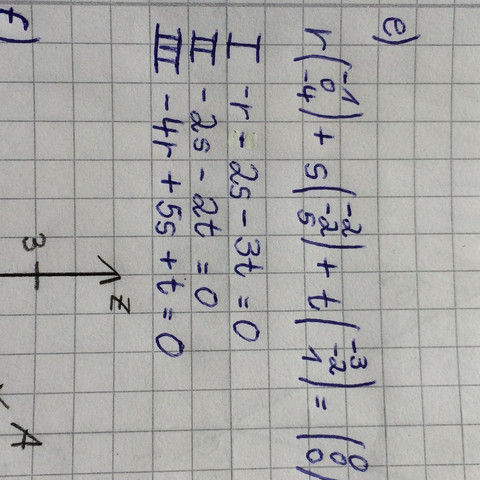 e)
r(-1 0 -4) + s(-2 -2 5) + t(-3 -2 1) = (0 0 0)
I -r - 2s - 3t = 0
II -2s - 2t = 0
III -4r + 5s + t = 0
f)
3
z
A